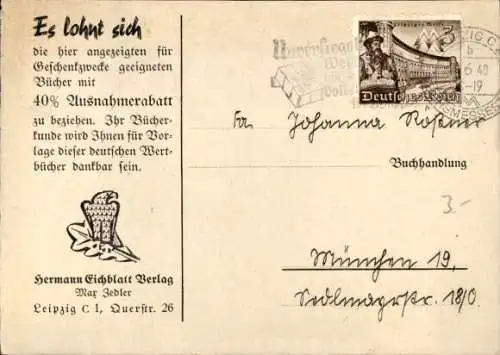 Es lohnt sich
die hier angezeigten für
Geschenkzwecke geeigneten
Bücher mit
40% Ausnahmerabatt
zu beziehen. Ihr Bücher-
kunde wird Ihnen für Vor-
lage dieser deutschen Wert-
bücher dankbar sein.
Hermann Eichblatt Verlag
Max Zedler
Leipzig C 1, Querstr. 26
Leipziger Messe
3
Deutsches Reich
b
6 40
-19
Fa. Johanna Roßner
Buchhandlung
3.-
München 19,
Sedlmayrstr. 18/0.